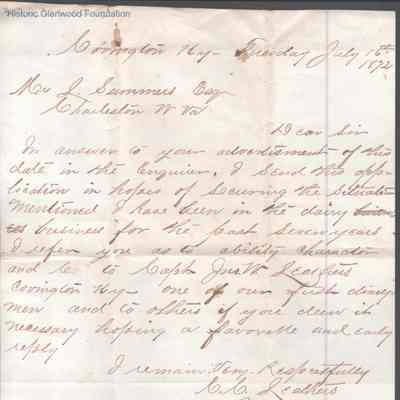 Historic Glenwood Foundation
Covington Ky - Tuesday July 16th
1872
Mr J Summers Esq
Charleston W Va
Dear Sir
In answer to your advertisment of this
date in the Enquirer. I Send this app-
location in hopes of Securing the Situation
Mentioned I have been in the dairy
business for the past Seven years -
I refer you as to ability character
and &c to Capt Leathers
Covington Ky - one of our first class
men and to others if you deem it
necessary hoping a favorable and early
reply
I remain Very Respectfully
C.C. Leathers